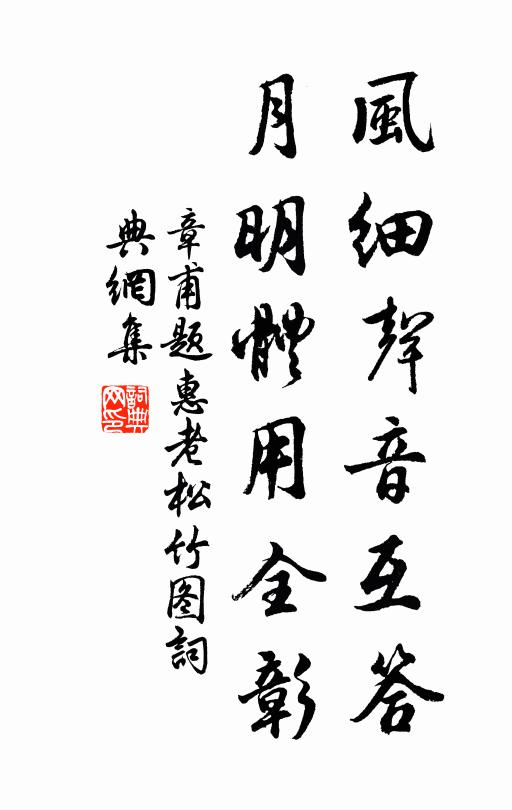 風細聲音互答
月明體用全彰
章甫題惠老松竹图詞
典網集
詞典網印